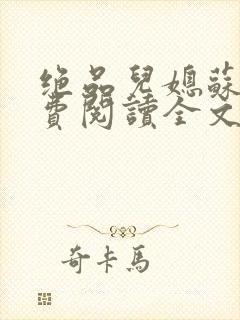 绝品兒媳蘇
費閱讀全文
奇卡馬